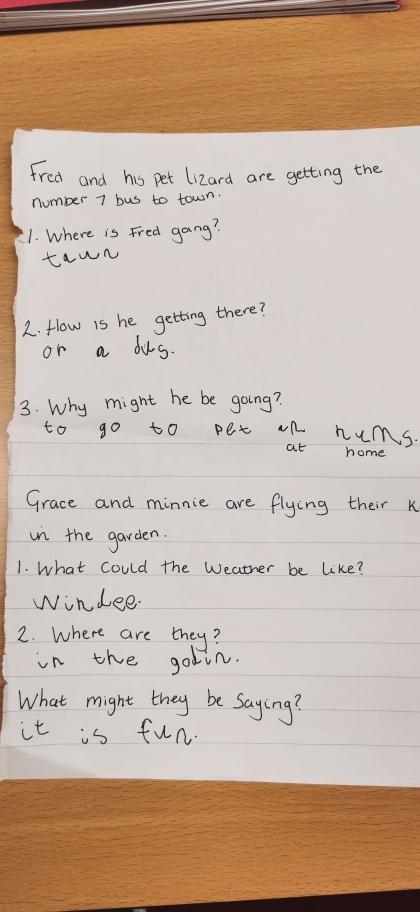 Fred and his pet lizard are getting the
number 7 bus to town.
1. Where is Fred gang?
taun
2. How is he getting there?
on a dus.
3. Why might he be going?
to go to pet hums.
at home
Grace and minnie are flying their K
in the garden.
1. What Could the Weather be like?
Windee.
2. Where are they?
in the godin.
What might they be Saying?
it is fun.